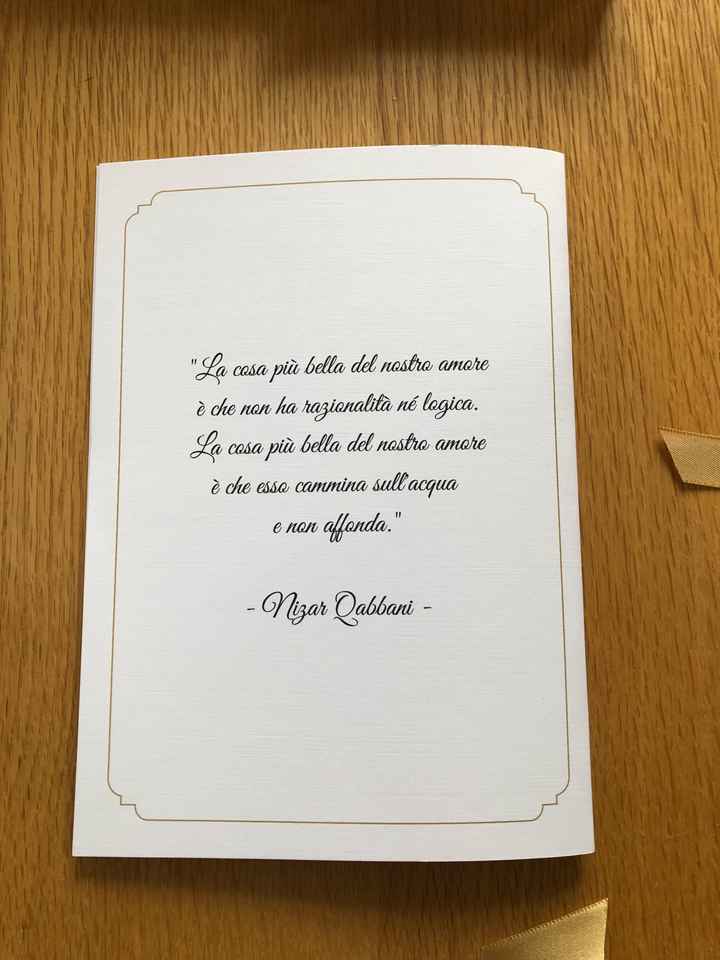 "La cosa più bella del nostro amore
è che non ha razionalità né logica.
La cosa più bella del nostro amore
è che esso cammina sull'acqua
e non affonda."
- Nizar Qabbani -